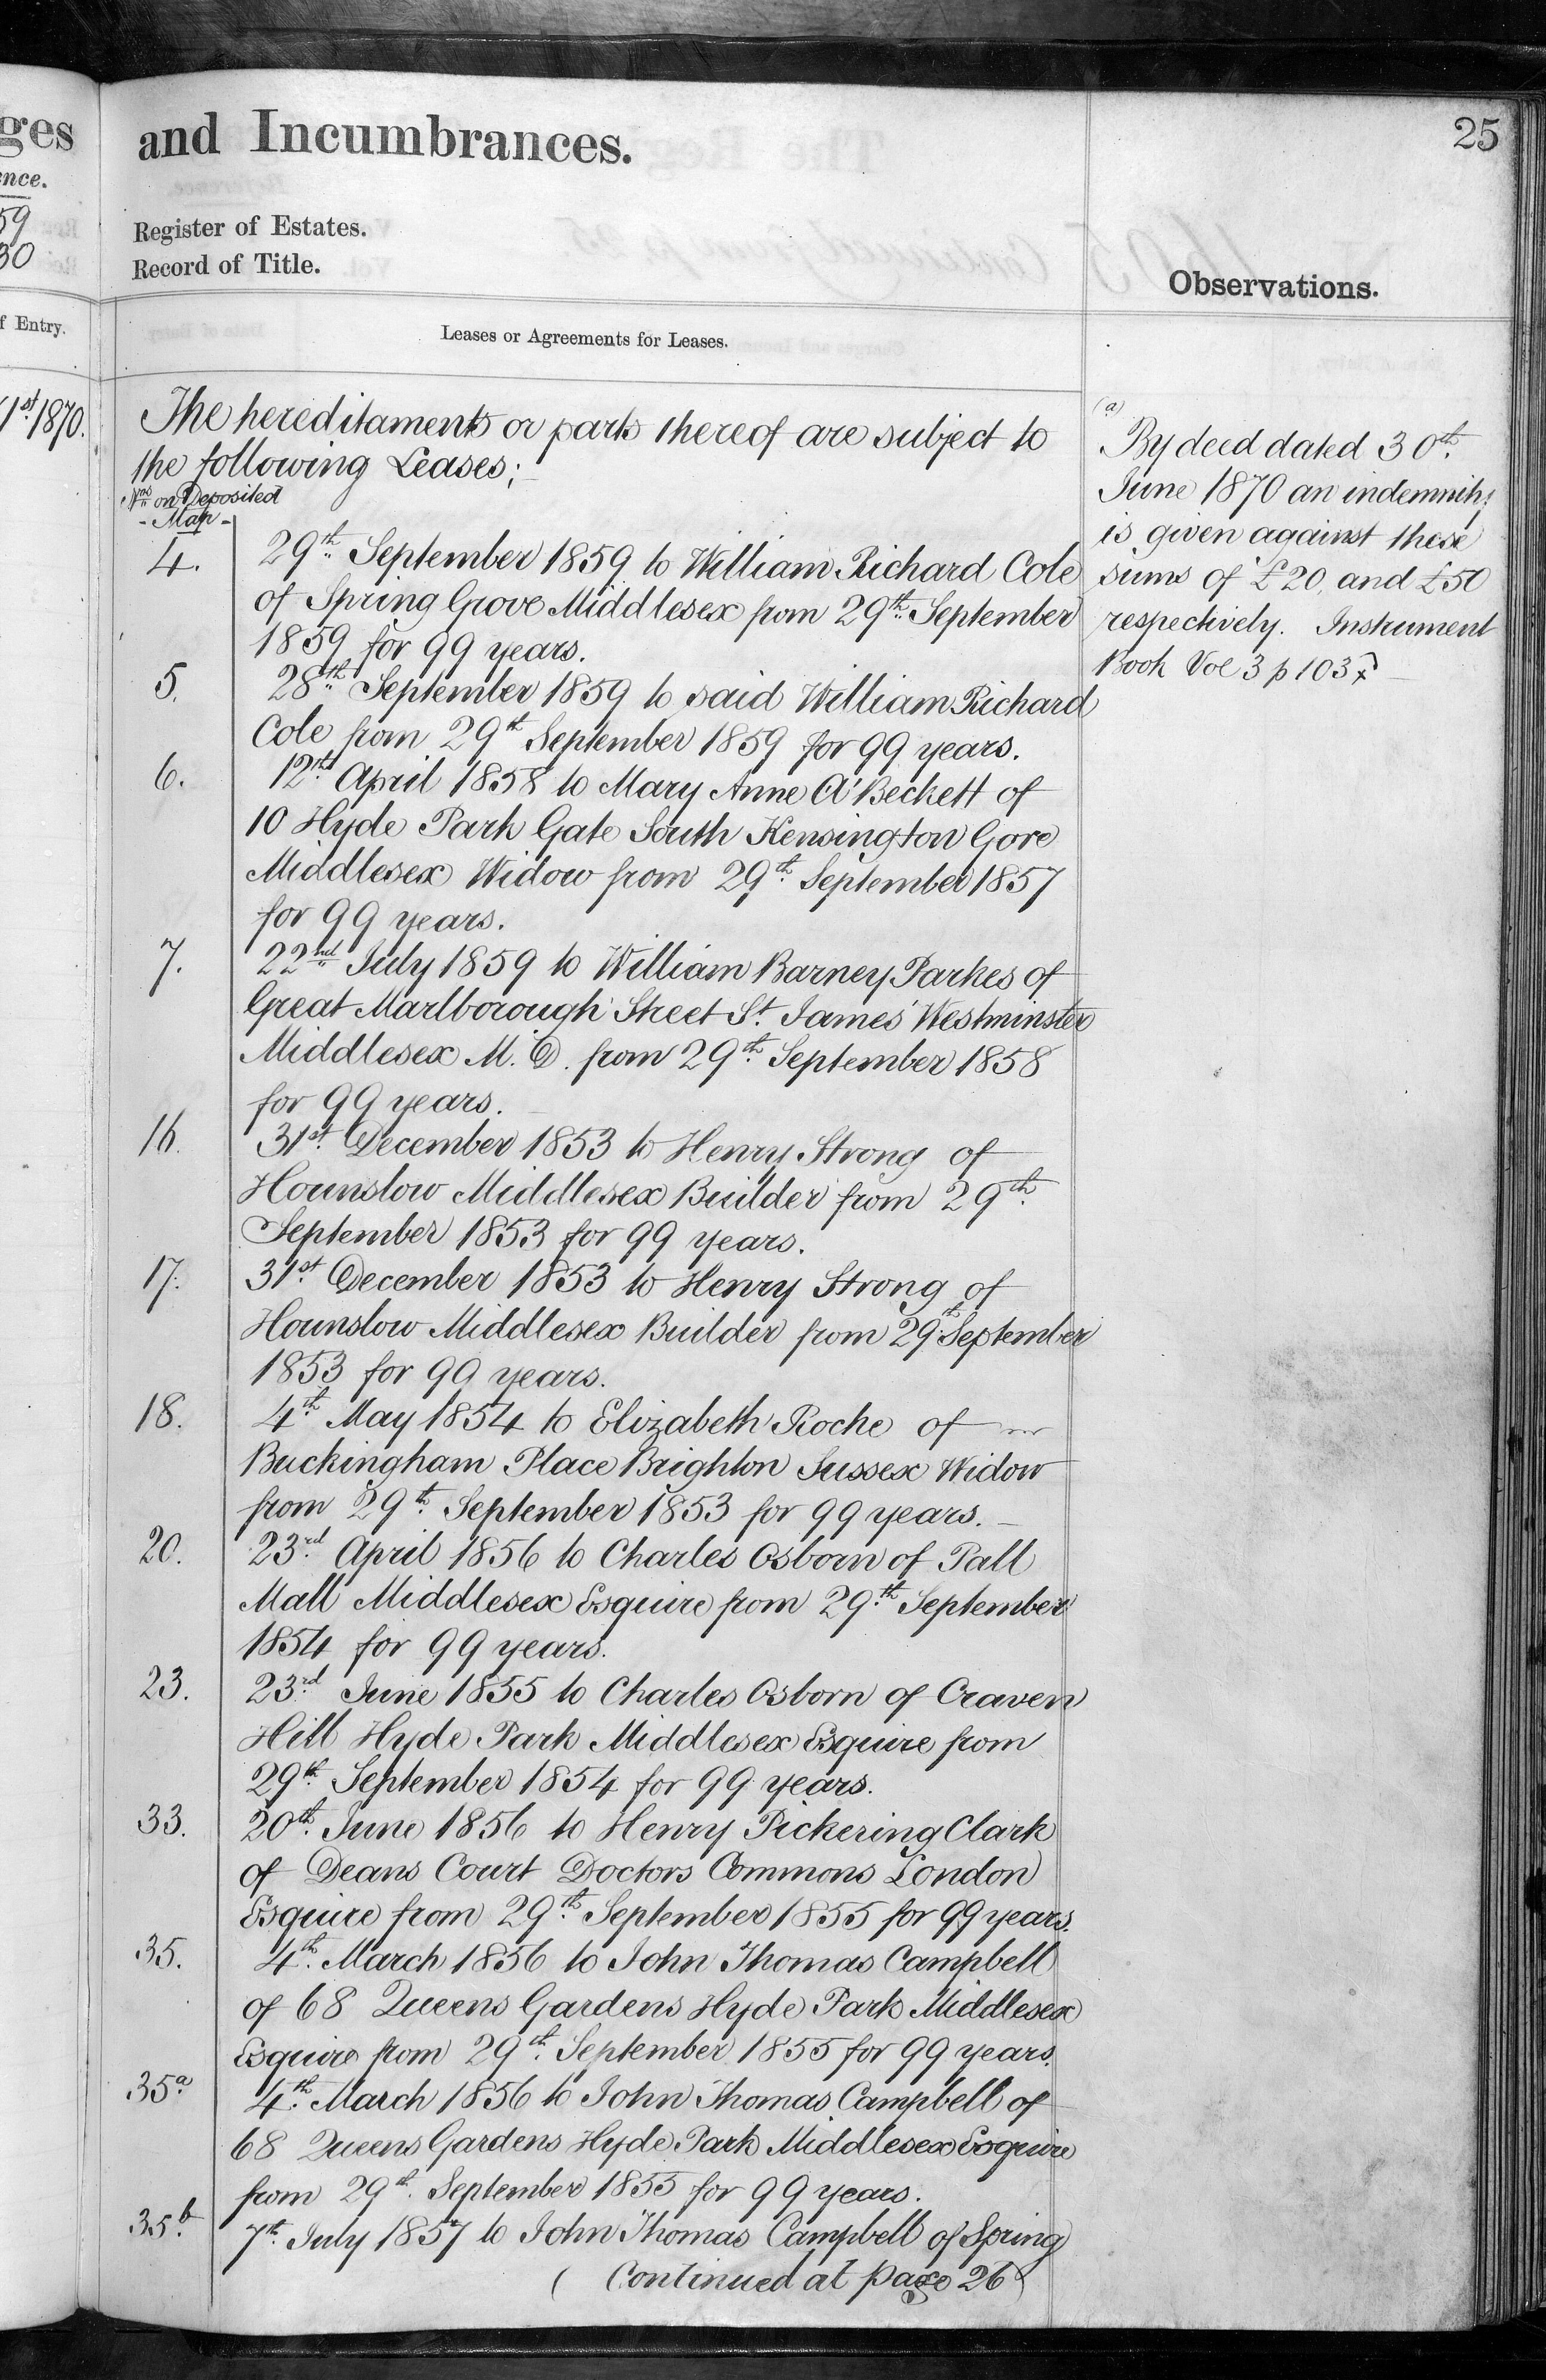 25
ges
and Incumbrances.
Register of Estates.
Record of Title.
Observations.
Entry.
Leases or Agreements for Leases.
1st 1870.
The hereditaments or parts thereof are subject to
the following Leases;
Nos on Deposited
- Map -
4. 29th September 1859 to William Richard Cole
of Spring Grove Middlesex from 29th September
1859 for 99 years.
5. 28th September 1859 to said William Richard
Cole from 29th September 1859 for 99 years.
6. 12th April 1858 to Mary Anne A'Beckett of
10 Hyde Park Gate South Kensington Gore
Middlesex Widow from 29th September 1857
for 99 years.
7. 22nd July 1859 to William Barney Parkes of
Great Marlborough Street St. James' Westminster
Middlesex M.D. from 29th September 1858
for 99 years.
16. 31st December 1853 to Henry Strong of
Hounslow Middlesex Builder from 29th
September 1853 for 99 years.
17. 31st December 1853 to Henry Strong of
Hounslow Middlesex Builder from 29th September
1853 for 99 years.
18. 4th May 1854 to Elizabeth Roche of
Buckingham Place Brighton Sussex Widow
from 29th September 1853 for 99 years. -
20. 23rd April 1856 to Charles Osborn of Pall
Mall Middlesex Esquire from 29th September
1854 for 99 years.
23. 23rd June 1855 to Charles Osborn of Craven
Hill Hyde Park Middlesex Esquire from
29th September 1854 for 99 years.
33. 20th June 1856 to Henry Pickering Clark
of Deans Court Doctors Commons London
Esquire from 29th September 1855 for 99 years.
35. 4th March 1856 to John Thomas Campbell
of 68 Queens Gardens Hyde Park Middlesex
Esquire from 29th September 1855 for 99 years.
35a 4th March 1856 to John Thomas Campbell of
68 Queens Gardens Hyde Park Middlesex Esquire
from 29th September 1855 for 99 years.
35b 7th July 1857 to John Thomas Campbell of Spring
(Continued at page 26)
(a)
By deed dated 30th
June 1870 an indemnity
is given against these
sums of £20, and £50
respectively. Instrument
Book Vol 3 p 103